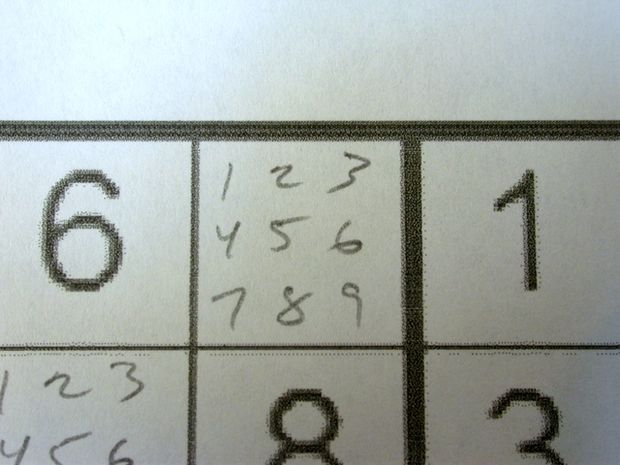 6 1
1 2 3
4 5 6
7 8 9
1 2 3
4 5 6
8 3